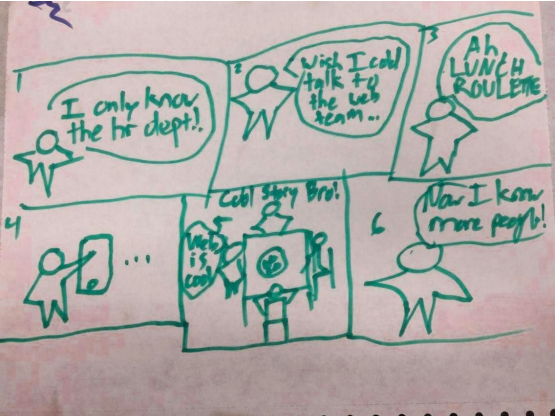 1
I only know
the hr dept!!
2
Wish I cold
talk to
the web
team...
3
Ah
LUNCH
ROULETTE
4
...
5
Cool Story Bro!
Web
is
cool
6
Now I know
more people!